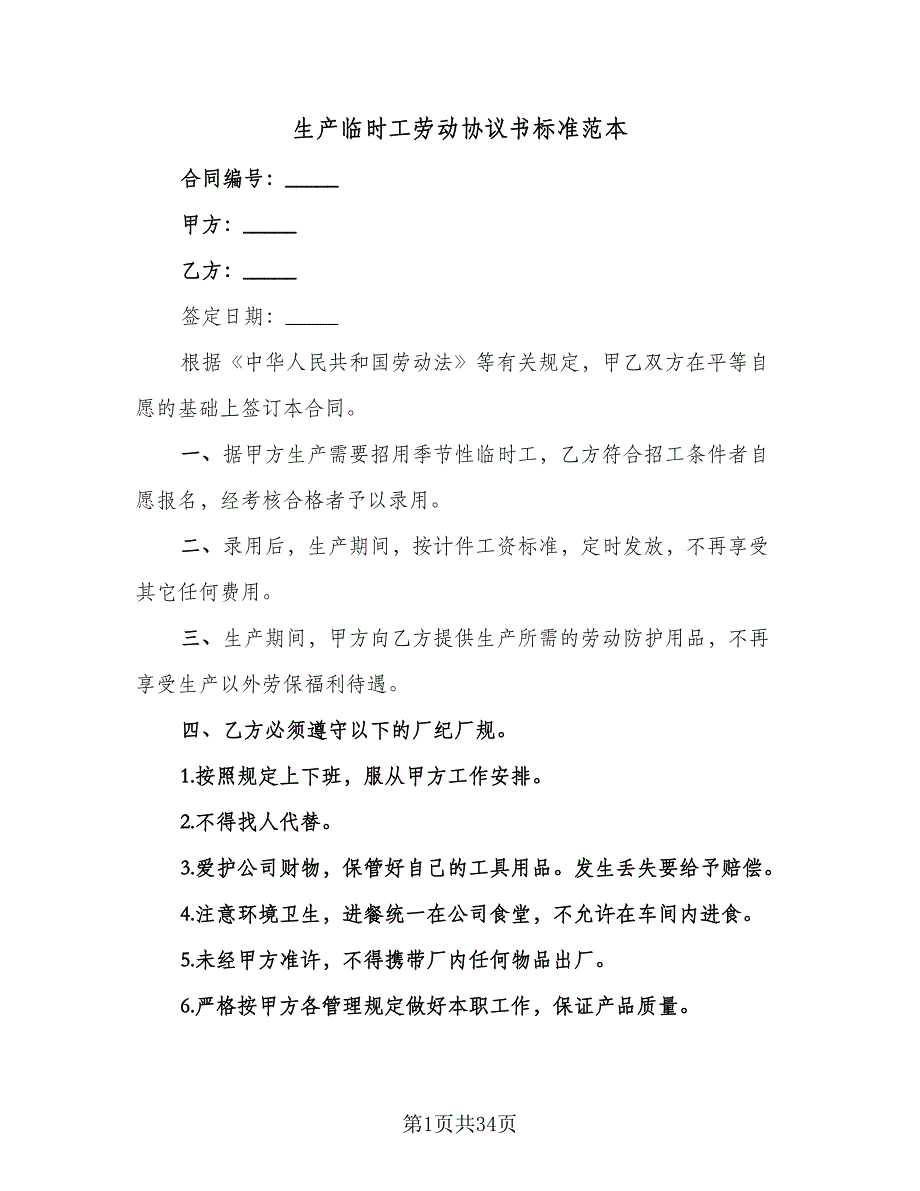 生产临时工劳动协议书标准范本
合同编号：_____
甲方：_____
乙方：_____
签定日期：_____
根据《中华人民共和国劳动法》等有关规定，甲乙双方在平等自
愿的基础上签订本合同。
一、据甲方生产需要招用季节性临时工，乙方符合招工条件者自
愿报名，经考核合格者予以录用。
二、录用后，生产期间，按计件工资标准，定时发放，不再享受
其它任何费用。
三、生产期间，甲方向乙方提供生产所需的劳动防护用品，不再
享受生产以外劳保福利待遇。
四、乙方必须遵守以下的厂纪厂规。
1.按照规定上下班，服从甲方工作安排。
2.不得找人代替。
3.爱护公司财物，保管好自己的工具用品。发生丢失要给予赔偿。
4.注意环境卫生，进餐统一在公司食堂，不允许在车间内进食。
5.未经甲方准许，不得携带厂内任何物品出厂。
6.严格按甲方各管理规定做好本职工作，保证产品质量。
第1页共34页